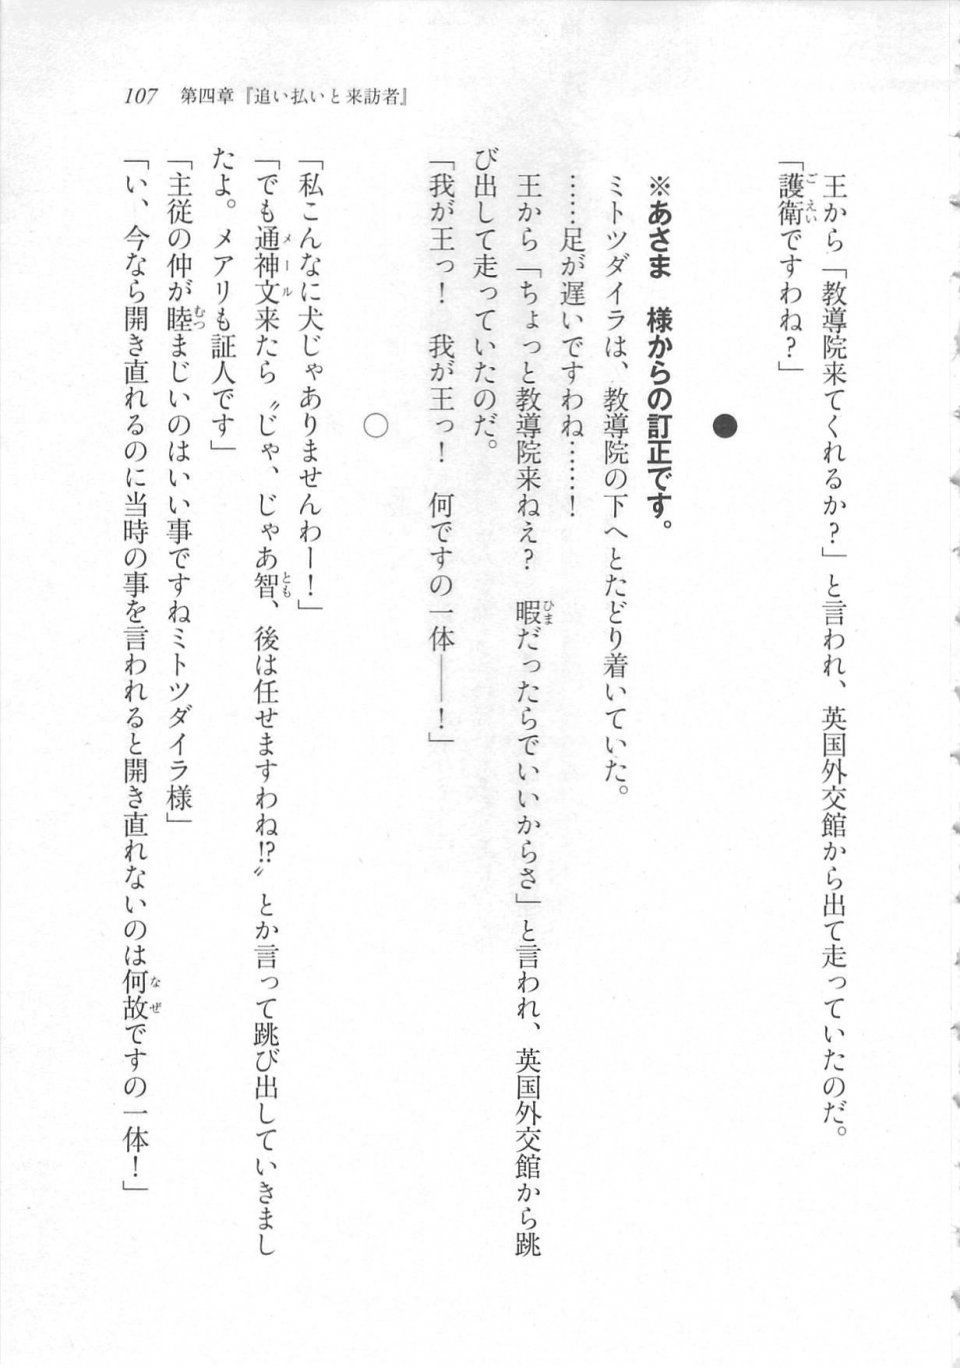 107 第四章『追い払いと来訪者』
王から「教導院来てくれるか？」と言われ、英国外交館から出て走っていたのだ。
「護衛ですわね？」
●
※あさま　様からの訂正です。
ミトツダイラは、教導院の下へとたどり着いていた。
……足が遅いですわね……！
王から「ちょっと教導院来ねえ？　暇だったらでいいからさ」と言われ、英国外交館から跳
び出して走っていたのだ。
「我が王っ！　我が王っ！　何ですの一体――！」
○
「私こんなに犬じゃありませんわー！」
「でも通神文来たら〝じゃ、じゃあ智、後は任せますわね⁉〟とか言って跳び出していきまし
たよ。メアリも証人です」
「主従の仲が睦まじいのはいい事ですねミトツダイラ様」
「い、今なら開き直れるのに当時の事を言われると開き直れないのは何故ですの一体！」